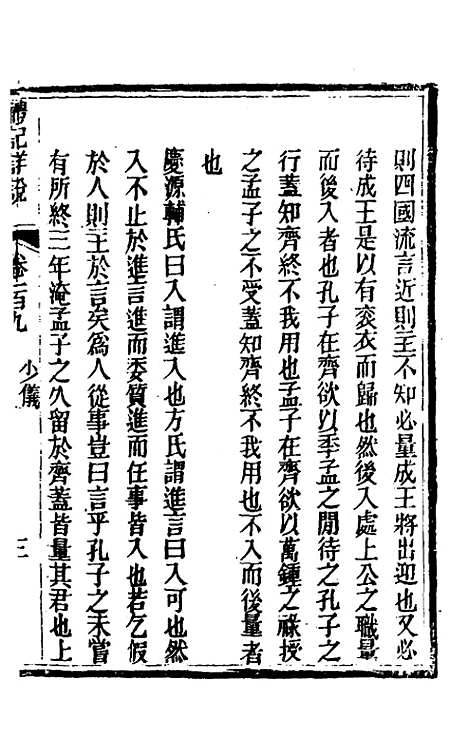 則四國流言近則王不知必量成王將出迎也又必
待成王是以有袞衣而歸也然後入處上公之職量
而後入者也孔子在齊欲以季孟之閒待之孔子之
行蓋知齊終不我用也孟子在齊欲以萬鍾之祿授
之孟子之不受蓋知齊終不我用也不入而後量者
也
慶源輔氏曰入謂進入也方氏謂進言曰入可也然
入不止於進言進而委質進而任事皆入也若乞假
於人則主於言矣為人從事豈曰言乎孔子之未嘗
有所終三年淹孟子之久留於齊蓋皆量其君也上
禮記詳說
卷一百九
少儀
三